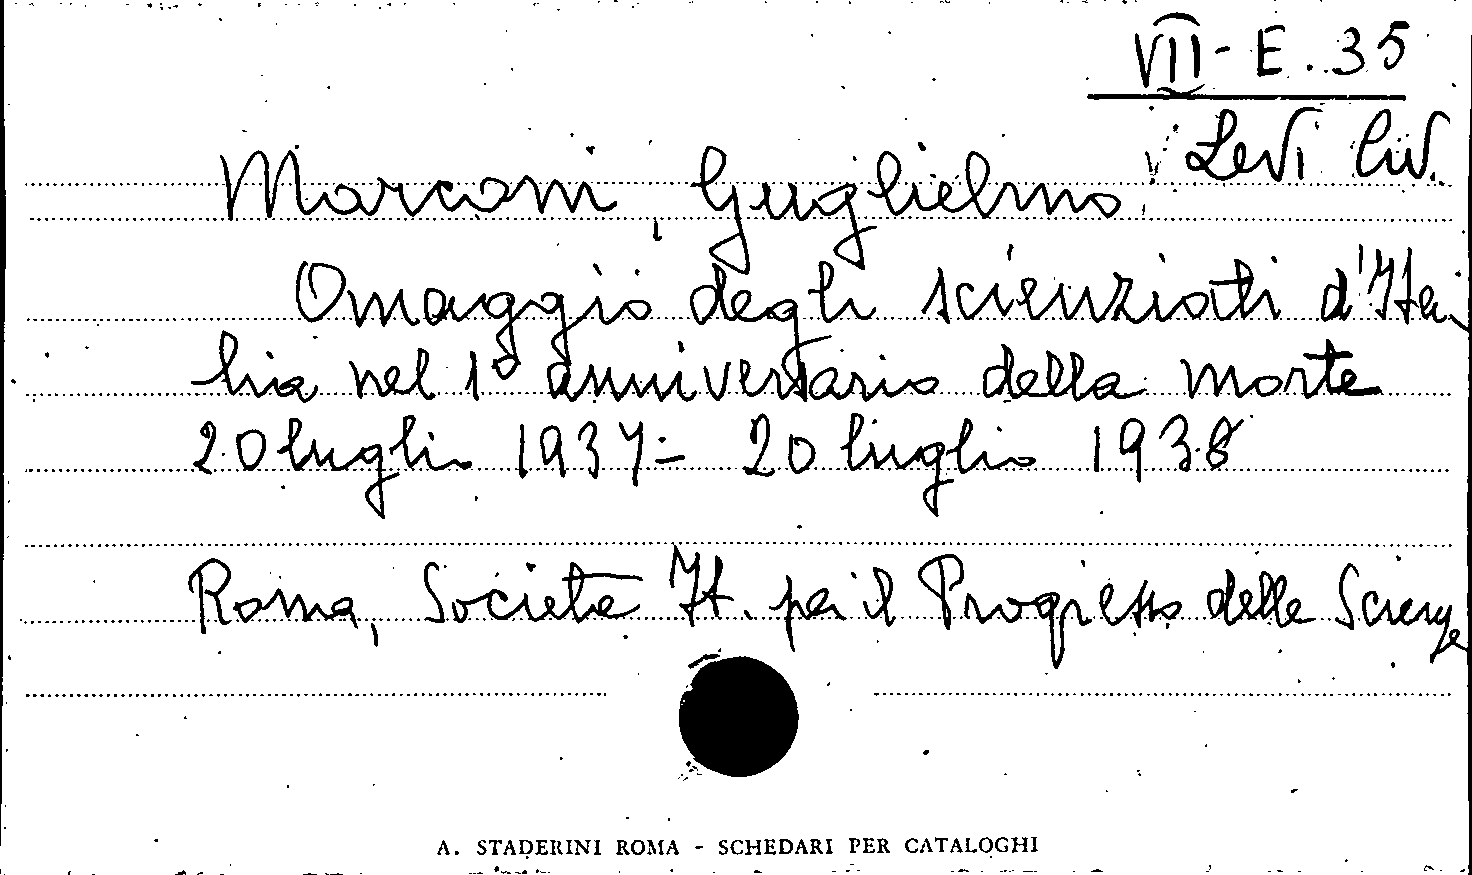 VII - E. 35
Levi Civ.
Marconi, Guglielmo
Omaggio degli scienziati d'Ita-
lia nel 1° anniversario della morte
20 luglio 1937 = 20 luglio 1938
Roma, Società It. per il Progresso delle Scienze
A. STADERINI ROMA - SCHEDARI PER CATALOGHI